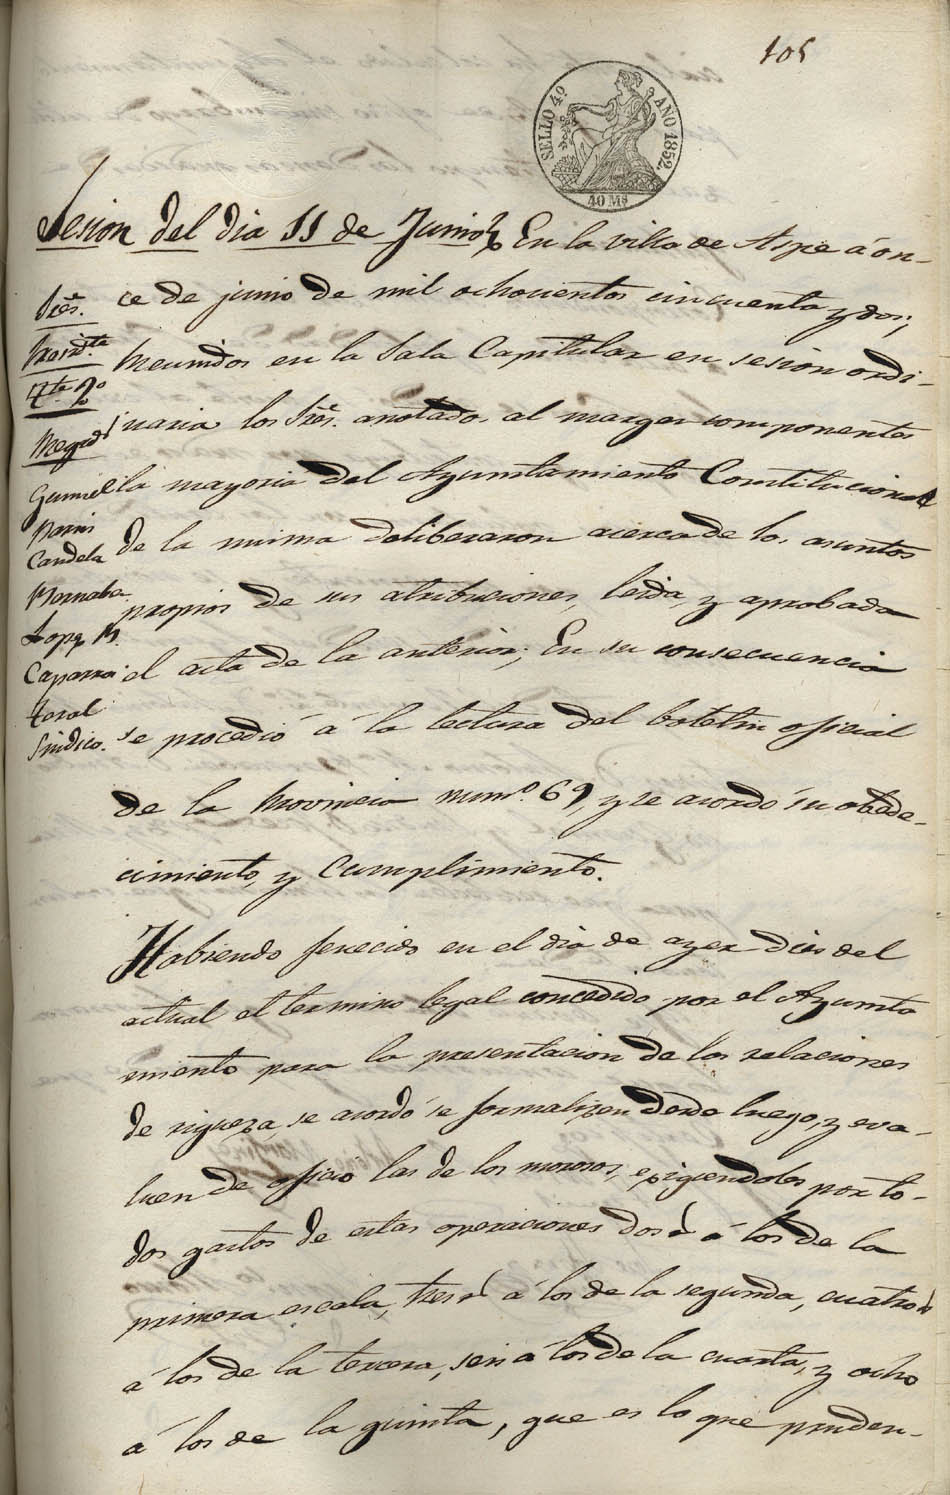 105
SELLO 4º AÑO 1852.
40 Ms
Sesion del dia 11 de Junio En la villa de Aspe á on-
ce de junio de mil ochocientos cincuenta y dos;
Reunidos en la Sala Capitular en sesion ordi-
naria los Sres. anotados al margen componentes
la mayoria del Ayuntamiento Constitucional
de la misma deliberaron acerca de los asuntos
propios de sus atribuciones, leida, y aprobada
el acta de la anterior; En su consecuencia
se procedió á la lectura del boletin oficial
de la Provincia num.º 69, y se acordó su obede-
cimiento, y Cumplimiento.
Sres.
Presid.te
Tte. 2º
Regid.s
Gumiel
Pavia
Candela
Bernabe
Lopz M.
Caparros
Teral
Sindico.
Habiendo fenecido en el dia de ayer dies del
actual el termino legal concedido por el Ayunta
miento para la presentacion de las relaciones
de riqueza, se acordó se formalizen desde luego, y eva-
luen de oficio las de los morosos, exigiendoles por to-
dos gastos de estas operaciones dos r á los de la
primera escala, tres r á los de la segunda, cuatro r
á los de la tercera, seis á los de la cuarta, y ocho
á los de la quinta, que es lo que pruden-